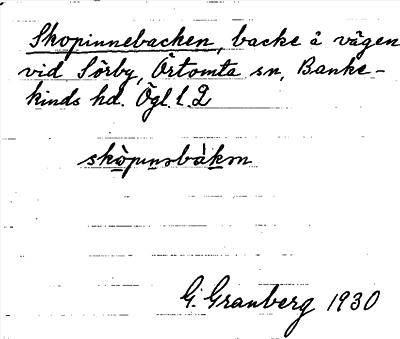 Skopinnebacken, backe å vägen
vid Sörby, Örtomta sn, Banke-
kinds hd. Ögl. l. 2
skòpɩnsbàkən
G. Granberg 1930